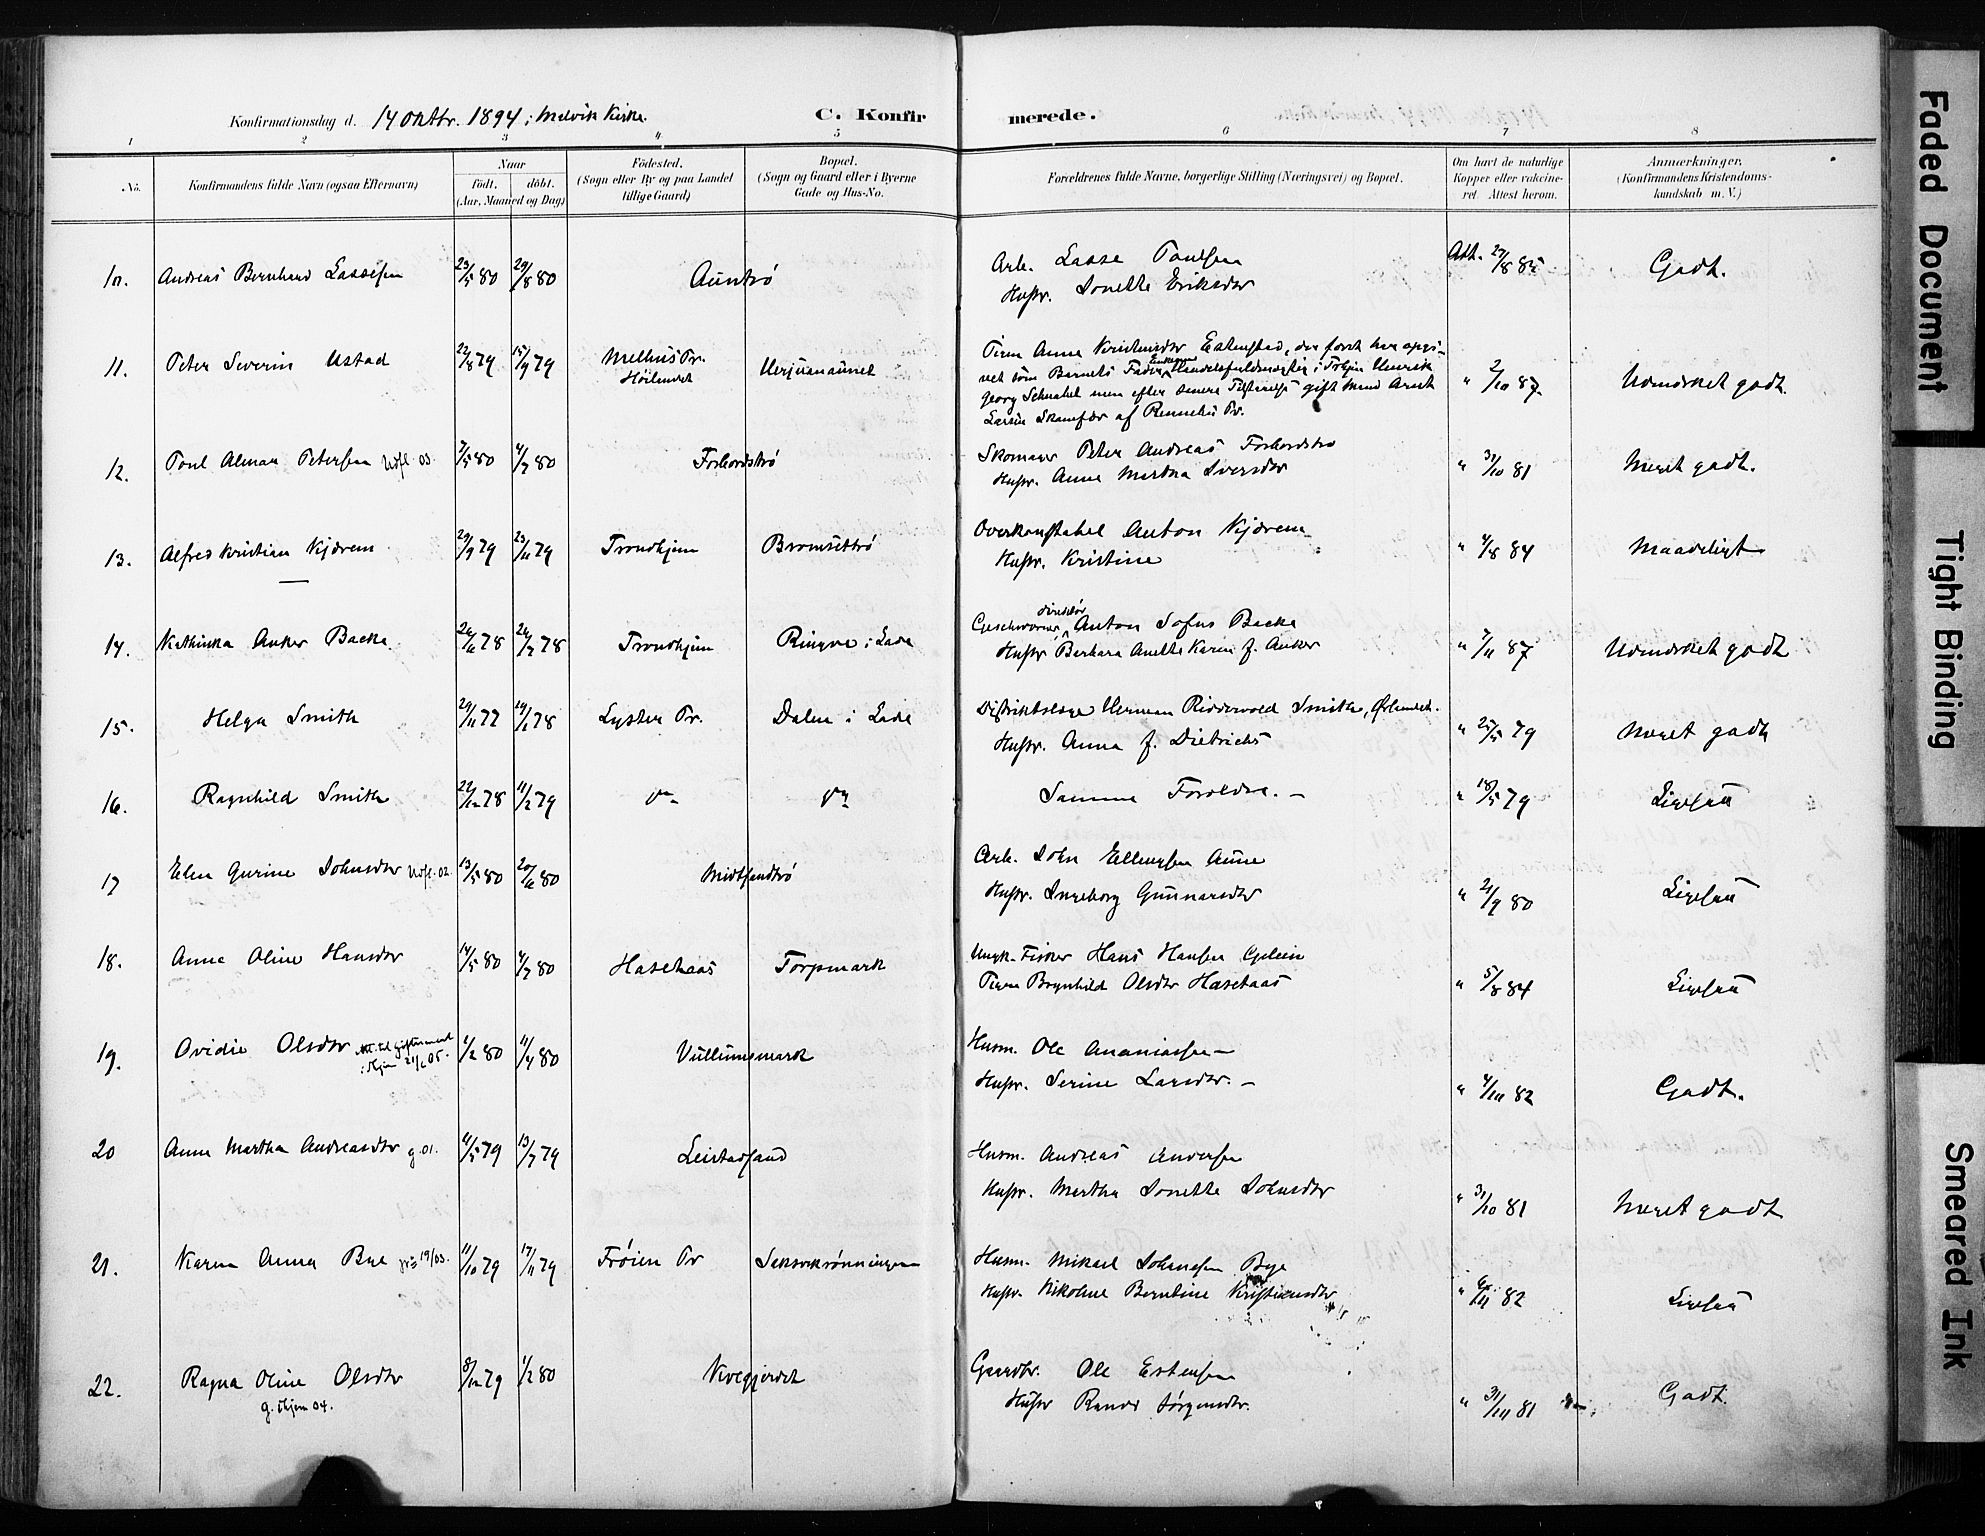 Konfirmationsdag d. 14 Oktbr. 1894 i Malvik Kirke. C. Konfirmerede.
1 2 3 4 5 6 7 8
No. Konfirmandens fulde Navn (ogsaa Efternavn) Naar født. døbt. (Aar, Maaned og Dag) Fødested. (Sogn eller By og paa Landet tillige Gaard) Bopæl. (Sogn og Gaard eller i Byerne Gade og Hus-No. Forældrenes fulde Navne, borgerlige Stilling (Næringsvei) og Bopæl. Om havt de naturlige Kopper eller vakcineret. Attest herom. Anmærkninger. (Konfirmandens Kristendomskundskab m. V.)
10. Andreas Bernhard Lassesen 23/5 80 29/8 80 Auntrø Arb. Lasse Paulsen Att. 27/8 85 Godt.
Hustr. Jonette Eriksdtr
11. Peter Severin Ustad 22/8 79 15/9 79 Melhus Pr. Høilandet Uerjuanaunet Pigen Anna Kristensdtr Estenstad, der først har opgivet som Barnets Fader Handelsfuldmægtig i Trhjm Henrik
Georg Schnabel men efter senere Tilstaaelse gift Mand Arnt " 2/10 87 Udmærket godt.
Larsen Skamfær af Rennebu Pr.
12. Paul Almar Petersen Udfl. 03. 7/5 80 4/7 80 Forbordstrø Skomager Peter Andreas Forbordstrø " 31/10 81 Meget godt.
Hustr. Anne Martha Iversdtr
13. Alfred Kristian Kjærem 29/9 79 23/11 79 Trondhjem Bromsettrø Overkonstabel Anton Kjærem " 4/8 84 Maadeligt
Hustr. Kristine
14. Kathinka Anker Backe. 26/6 78 26/7 78 Trondhjem Ringve i Lade Geschworner, direktør Anton Sofus Backe " 7/11 87 Udmærket godt
Hustr Barbara Anette Karine f. Anker
15. Helga Smith 29/11 77 19/1 78 Lyster Pr. Dalen i Lade Distriktslæge Herman Riddervold Smith, Ørlandet. " 25/5 79 Meget godt
Hustr. Anna f. Dietrichs
16. Ragnhild Smith 22/12 78 11/2 79 do do Samme Forældre. " 18/5 79 Ligesaa
17 Elen Gurine Johnsdtr Udfl. 02. 13/5 80 20/6 80 Midtsandtrø Arb. John Ellingsen Aune
Hustr. Ingeborg Gunnarsdtr " 21/9 80 Ligesaa
18. Anna Oline Hansdtr 14/5 80 4/7 80 Hasetaas Torpmark Ungk. Fisker Hans Hansen
Pigen Brynhild Olsdtr Hasetaas " 5/8 84 Ligesaa
19. Ovidie Olsdtr Att. til Giftermaal i Thjem 21/6 05. 1/2 80 11/4 80 Vullumsmark Husm. Ole Ananiassen
Hustr. Serine Larsdtr. " 4/10 82 Godt.
20 Anne Martha Andreasdtr g. 01. 11/5 79 13/7 79 Leistadsand Husm. Andreas Andersen
Hustr. Martha Jonette Johnsdtr " 31/10 81 Meget godt
21. Karen Anna Bye 19/03. 11/10 79 17/11 79 Frøien Pr Saksvikrønningen Husm. Mikael Johansen Bye
Hustr. Nikoline Berntine Kristiansdtr " 82 Ligesaa
22. Ragna Oline Olsdtr g. Thjem 04. 8/12 79 1/2 80 Kvegjerdet Gaardbr. Ole Estensen
Hustr Randi Jørgensdtr. " 31/10 81 Godt.
Faded Document
Tight Binding
Smeared Ink